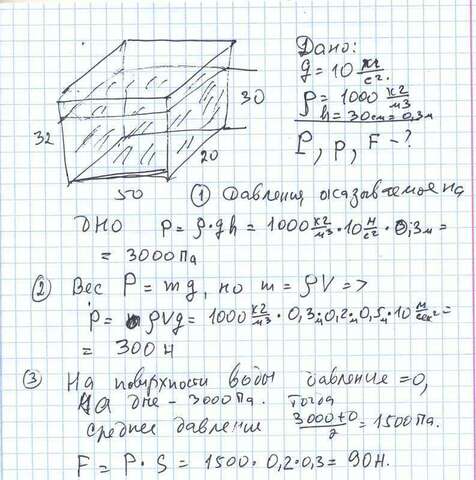 Дано:
g = 10 кг/сг.
ρ = 1000 кг/м3
h = 30см = 0,3м
P, p, F - ?
32
30
20
50
① Давления оказываемое на
дно p = ρ·gh = 1000 кг/м³ · 10 м/с² · 0,3м =
= 3000 Па
② Вес P = mg, но m = ρV =>
P = ρVg = 1000 кг/м³ · 0,3м · 0,2м · 0,5м · 10 м/сек² =
= 300 Н
③ На поверхности воды давление = 0,
На дне - 3000 Па. Тогда
среднее давление (3000+0)/2 = 1500 Па.
F = P · S = 1500 · 0,2 · 0,3 = 90 Н.